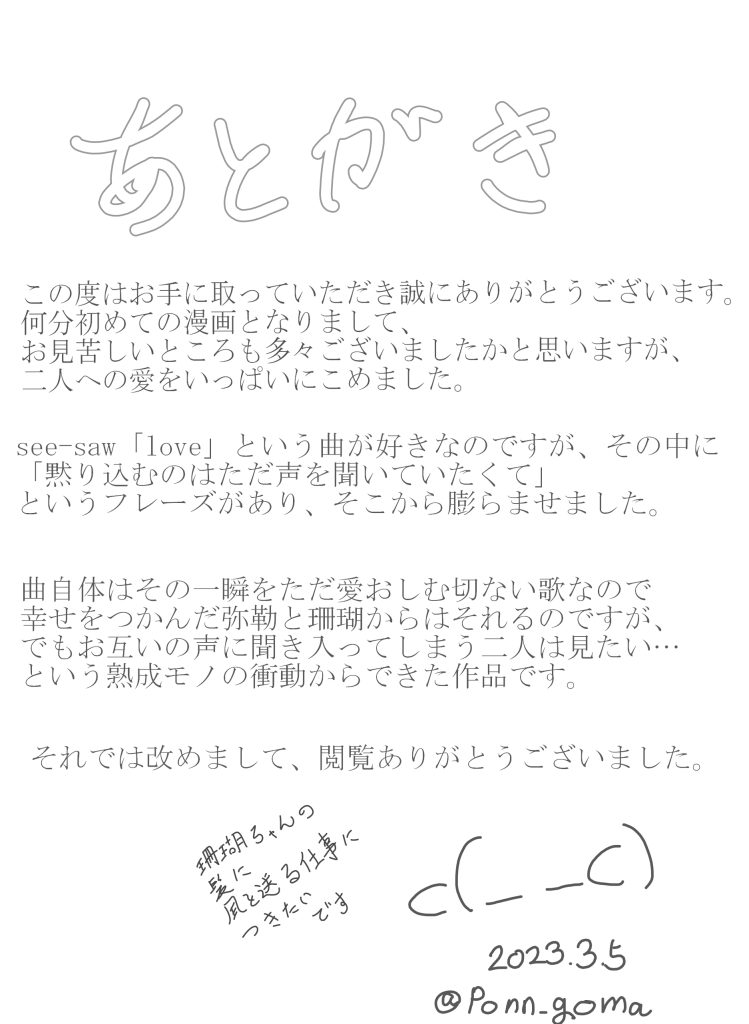 あとがき
この度はお手に取っていただき誠にありがとうございます。
何分初めての漫画となりまして、
お見苦しいところも多々ございましたかと思いますが、
二人への愛をいっぱいにこめました。
see-saw「love」という曲が好きなのですが、その中に
「黙り込むのはただ声を聞いていたくて」
というフレーズがあり、そこから膨らませました。
曲自体はその一瞬をただ愛おしむ切ない歌なので
幸せをつかんだ弥勒と珊瑚からはそれるのですが、
でもお互いの声に聞き入ってしまう二人は見たい…
という熟成モノの衝動からできた作品です。
それでは改めまして、閲覧ありがとうございました。
珊瑚ちゃんの
髪に
風を送る仕事に
つきたい
です
c(_ _c)
2023.3.5
@Ponn_goma